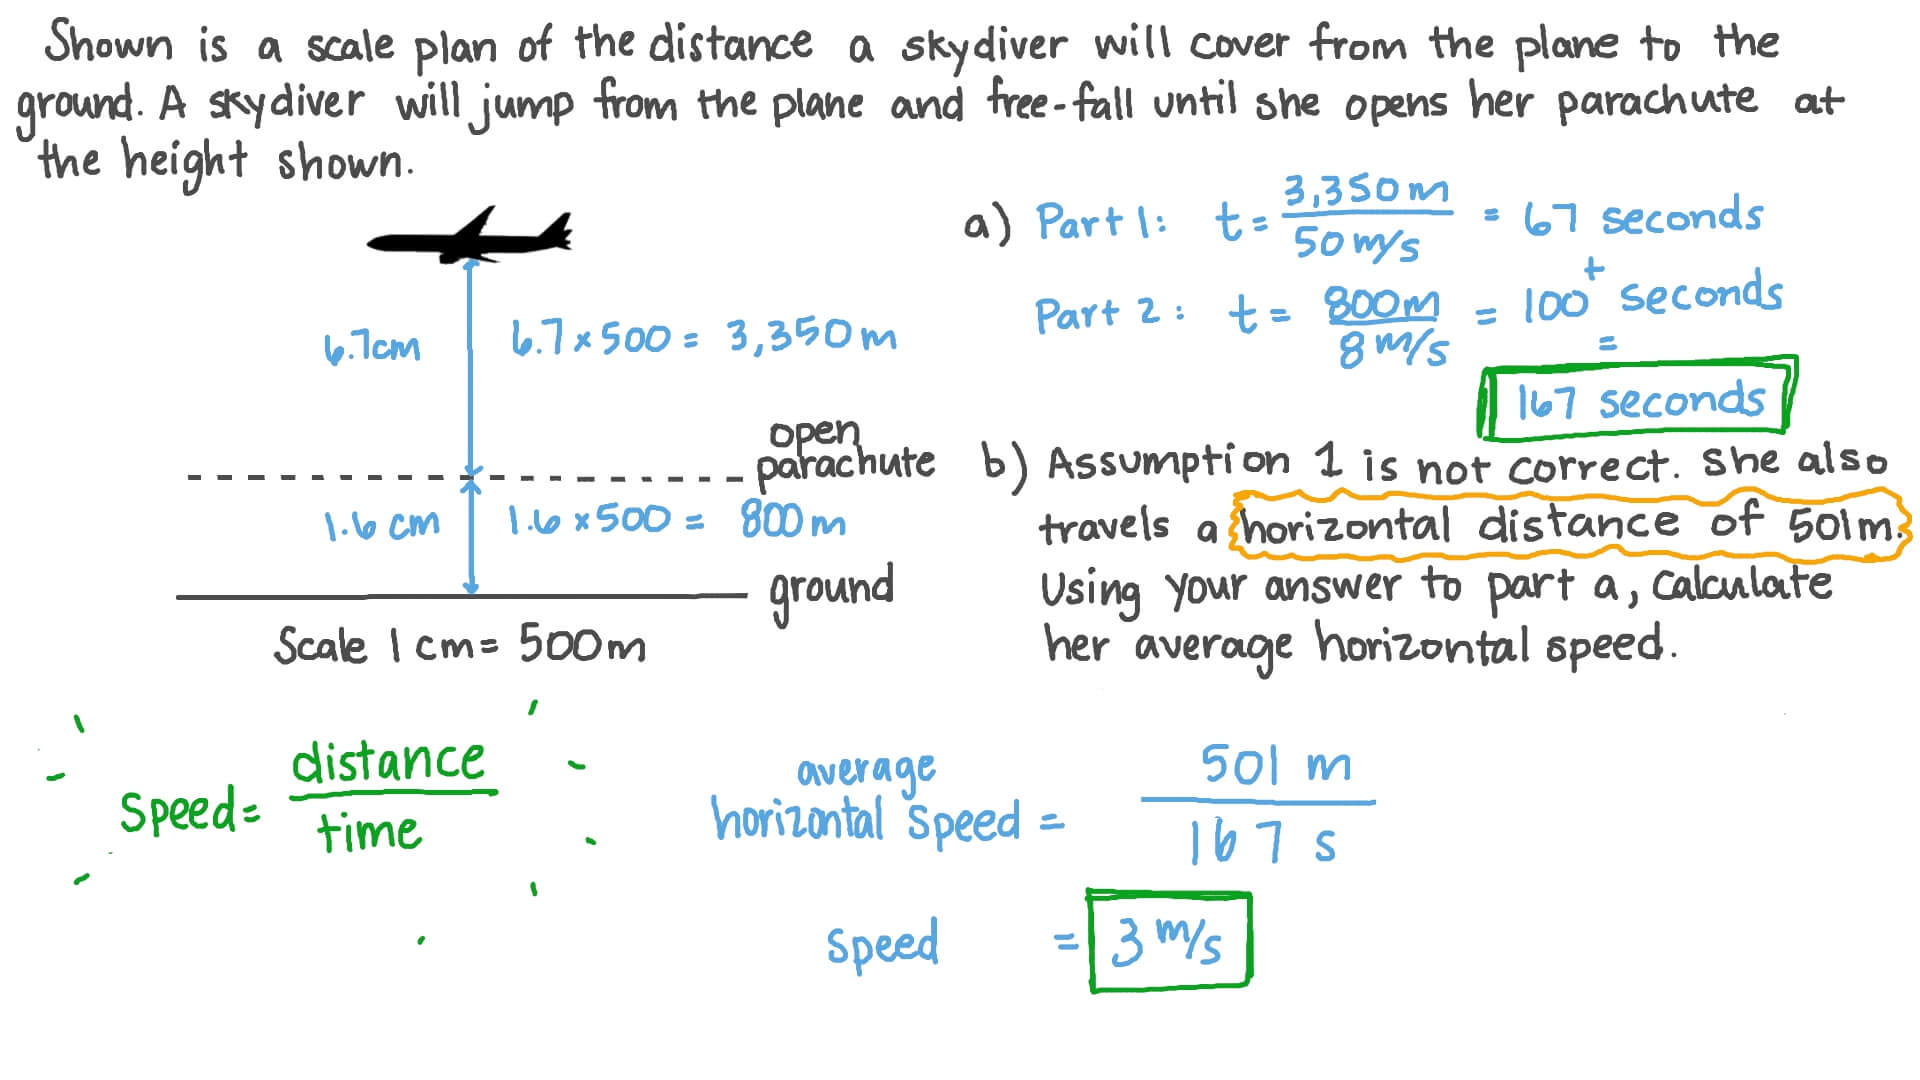 Shown is a scale plan of the distance a skydiver will cover from the plane to the
ground. A skydiver will jump from the plane and free-fall until she opens her parachute at
the height shown.
6.7cm
6.7 × 500 = 3,350 m
open
parachute
1.6 cm
1.6 × 500 = 800 m
ground
Scale 1 cm = 500 m
a) Part 1: t = 3,350 m / 50 m/s = 67 seconds
+
Part 2: t = 800 m / 8 m/s = 100 seconds
=
167 seconds
b) Assumption 1 is not correct. She also
travels a horizontal distance of 501 m.
Using your answer to part a, calculate
her average horizontal speed.
Speed = distance / time
average
horizontal Speed = 501 m / 167 s
Speed = 3 m/s